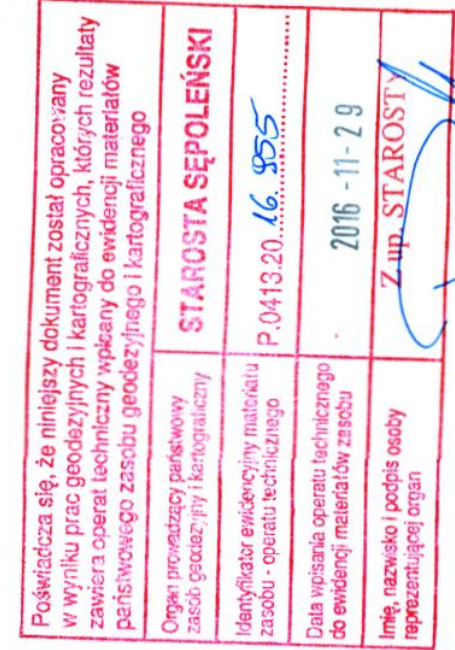 Poświadcza się, że niniejszy dokument został opracowany
w wyniku prac geodezyjnych i kartograficznych, których rezultaty
zawiera operat techniczny wpisany do ewidencji materiałów
państwowego zasobu geodezyjnego i kartograficznego
Organ prowadzący państwowy
zasób geodezyjny i kartograficzny
STAROSTA SĘPOLEŃSKI
Identyfikator ewidencyjny materiału
zasobu - operatu technicznego
P.0413.20.16.955
Data wpisania operatu technicznego
do ewidencji materiałów zasobu
2016 -11- 29
Imię, nazwisko i podpis osoby
reprezentującej organ
Z up. STAROSTY